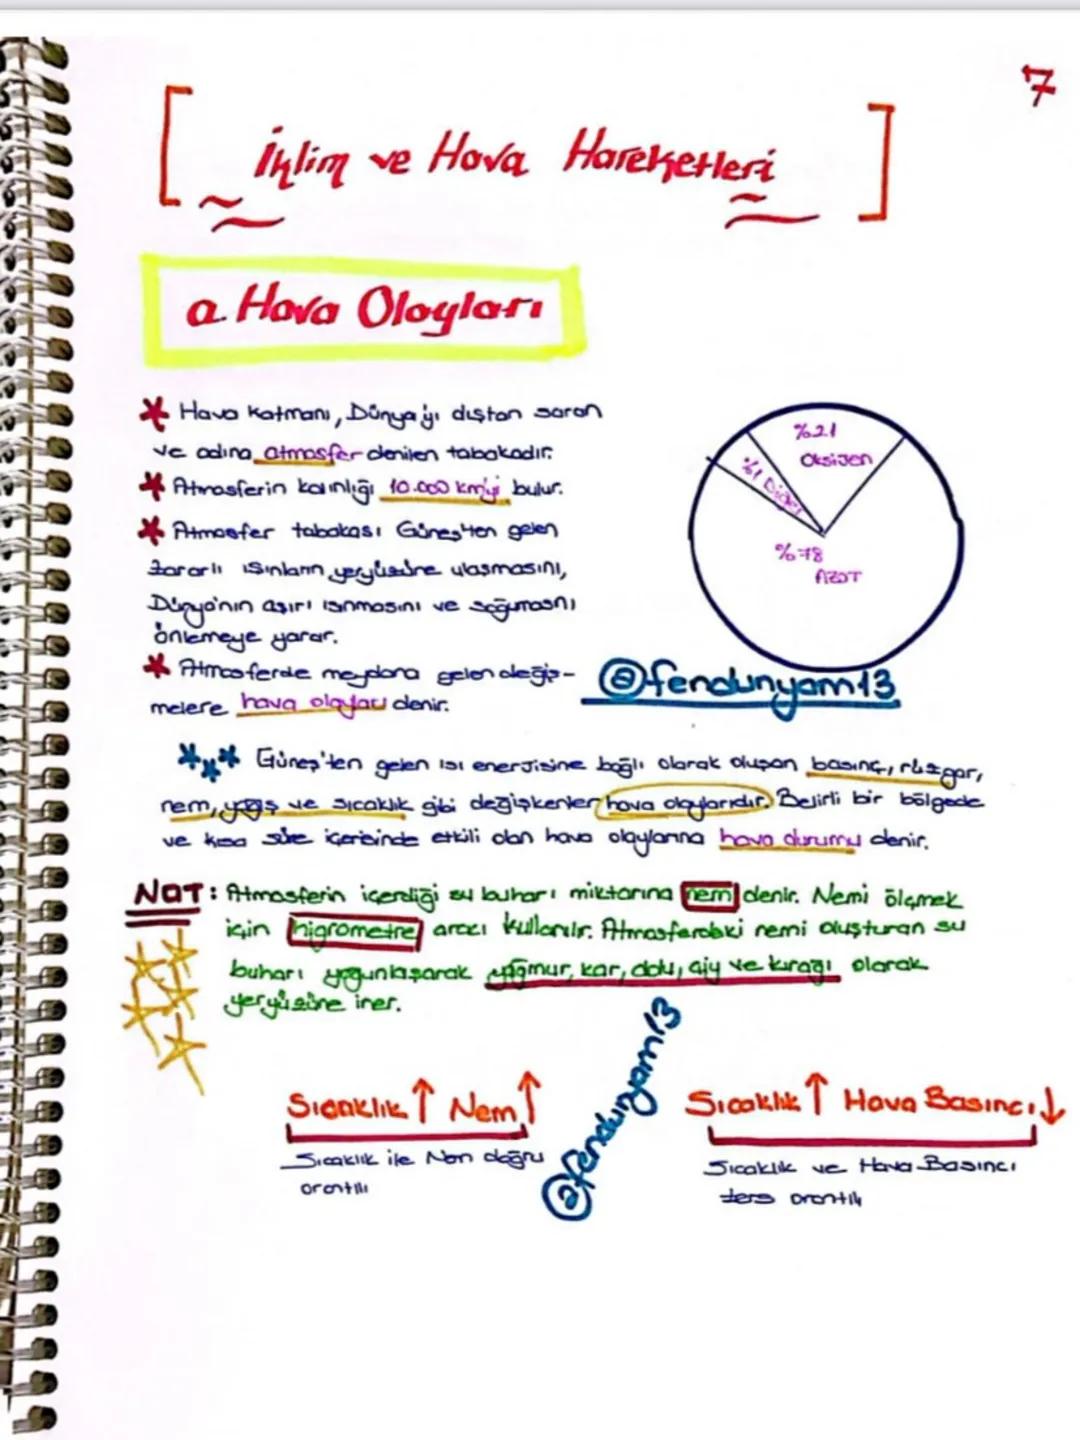 7
İklim ve Hava Hareketleri
a. Hava Olayları
Hava katmanı, Dünya'yı dıştan saran
ve adına atmosfer denilen tabakadır.
Atmosferin kalınlığı 10.000 km'yi bulur.
Atmosfer tabakası Güneş'ten gelen
zararlı ışınların yeryüzüne ulaşmasını,
Dünya'nın aşırı ısınmasını ve soğumasnı
önlemeye yarar.
Atmosferde meydana gelen değiş-
melere hava olayları denir.
%21
Oksijen
%1 Diğer
%78
AZOT
@fendunyam13
Güneş'ten gelen ısı enerjisine bağlı olarak oluşan basınç, rüzgar,
nem, yağış ve sıcaklık gibi değişkenler hava olaylarıdır. Belirli bir bölgede
ve kısa süre içerisinde etkili olan hava olaylarına hava durumu denir.
NOT: Atmosferin içerdiği su buharı miktarına nem denir. Nemi ölçmek
için higrometre aracı kullanılır. Atmosferdeki nemi oluşturan su
buharı yoğunlaşarak yağmur, kar, dolu, çiy ve kırağı olarak
yeryüzüne iner.
Sıcaklık ↑ Nem ↑
Sıcaklık ile Nem doğru
orantılı
@fendunyam13
Sıcaklık ↑ Hava Basıncı ↓
Sıcaklık ve Hava Basıncı
ters orantılı